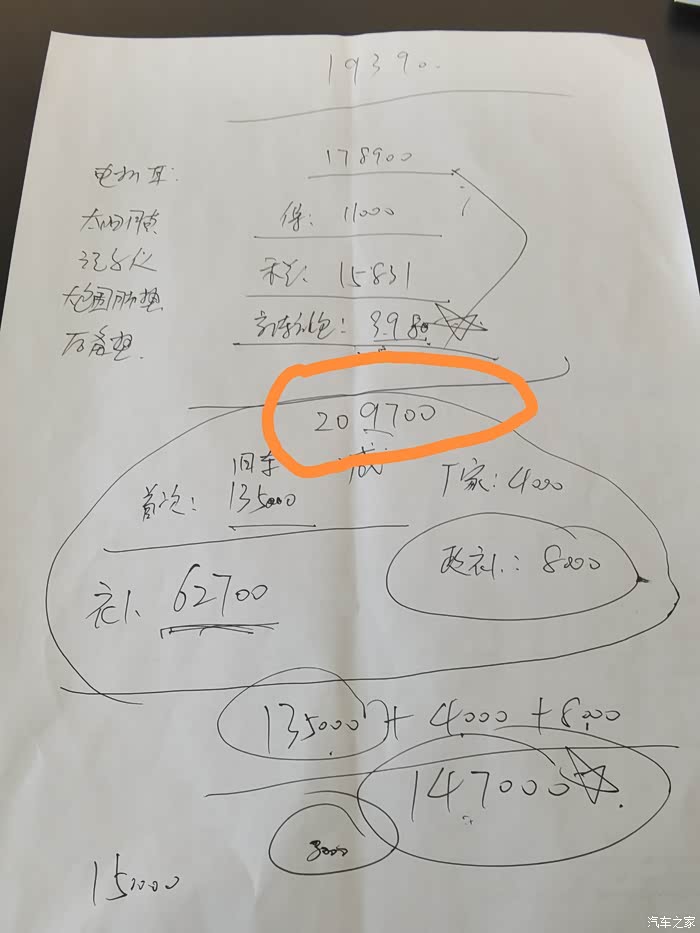 19390.
178900
电
太阳膜 保: 11000
记录仪 税: 15831
大包围脚垫 礼包: 3980
后备垫.
209700
旧车
首次: 135000 厂家: 4000
补 62700 政补: 8000
135000 + 4000 + 8000
147000
3000
15000
汽车之家